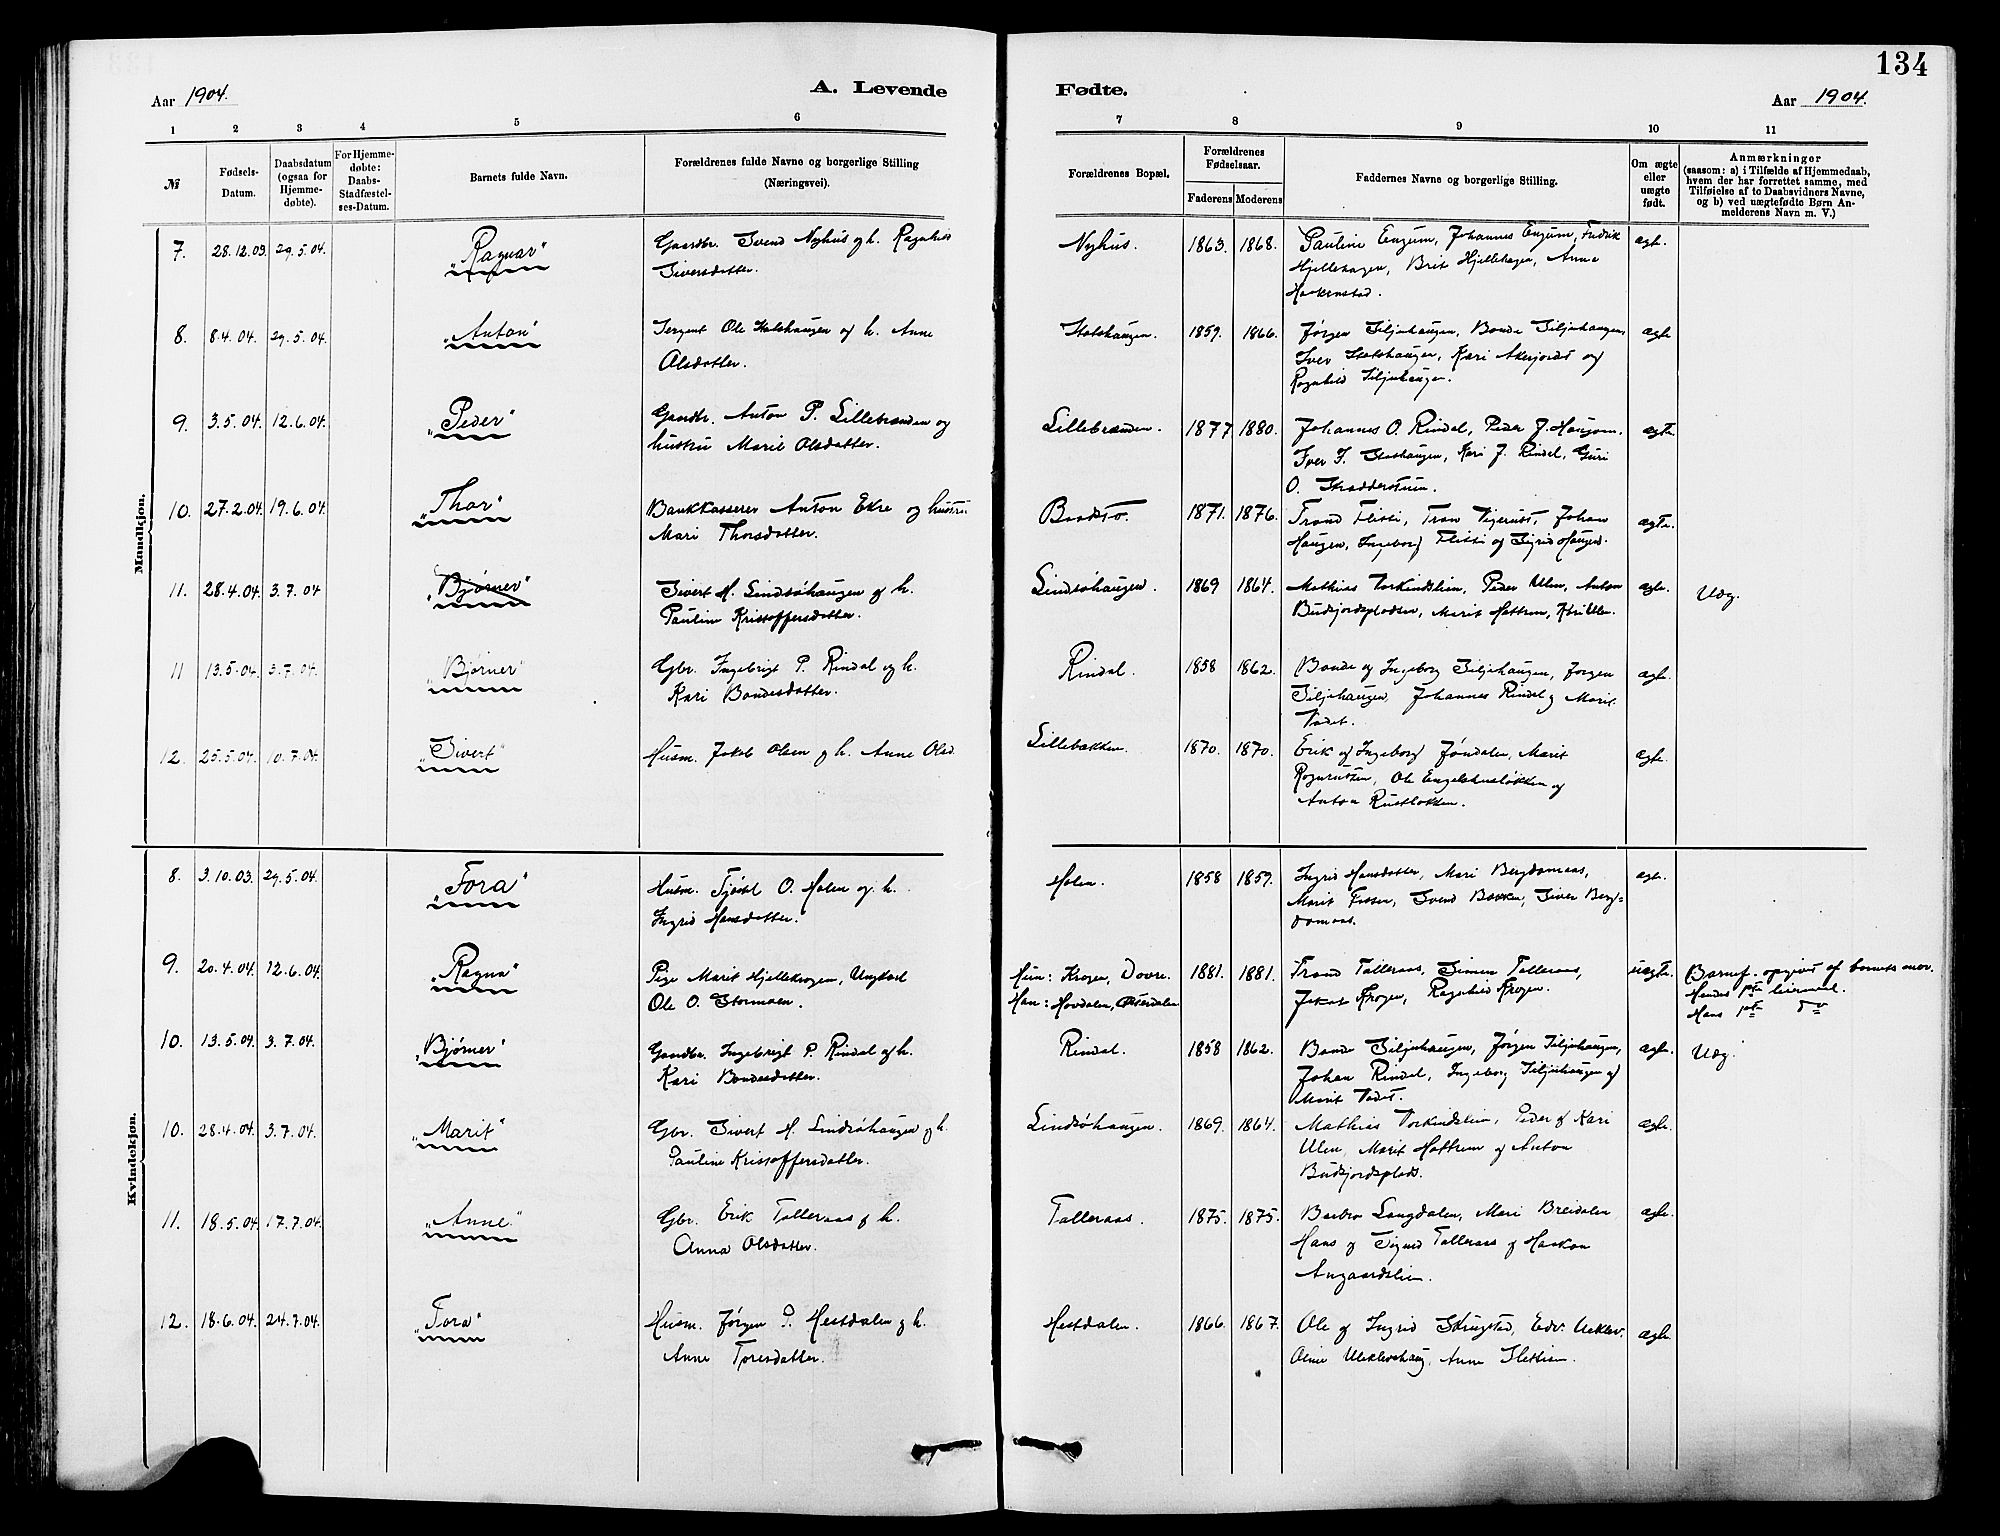 134
Aar 1904.
A. Levende
Fødte.
Aar 1904.
1 2 3 4 5 6 7 8 9 10 11
№
Fødsels-
Datum.
Daabsdatum
(ogsaa for
Hjemme-
døbte).
For Hjemme-
døbte:
Daabs-
Stadfæstel-
ses-Datum.
Barnets fulde Navn.
Forældrenes fulde Navne og borgerlige Stilling
(Næringsvei).
Forældrenes Bopæl.
Forældrenes
Fødselsaar.
Faderens Moderens
Faddernes Navne og borgerlige Stilling.
Om ægte
eller
uægte
født.
Anmærkninger
(saasom: a) i Tilfælde af Hjemmedaab,
hvem der har forrettet samme, med
Tilføielse af to Daabsvidners Navne,
og b) ved uægtefødte Børn An-
melderens Navn m. V.)
Mandkjøn.
7. 28.12.03. 29.5.04. "Ragnar" Gaardbr. Svend Nyhus og h. Ragnhild Nyhus. 1863. 1868. Pauline Engum, Johannes Engum, Fredrik ægte.
Siversdatter. Hjellehagen, Brit Hjellehagen, Anne
8. 8.4.04. 29.5.04. "Anton" Sergent Ole Stolshaugen og h. Anne Stolshaugen. 1859. 1866. Jørgen Siljehaugen, Bonde Siljehaugen, ægte
Olsdatter. Iver Stolshaugen, Kari Akerjordet og
Ragnhild Siljehaugen.
9. 3.5.04. 12.6.04. "Peder" Gaardbr. Anton P. Lillebrænden og Lillebrænden. 1877 1880. Johannes O. Rindal, Peder J. ægte.
hustru Marit Olsdatter. Iver I. Stolshaugen, Kari J. Rindal, Guri
O. Skradderstuen.
10. 27.2.04. 19.6.04. "Thor" Bankkasserer Anton Ekre og hustru 1871. 1876. Trond Flitti, Johan ægte.
Mari Thorsdatter. Haugen, Ingeborg Flitti og Sigrid Haugen.
11. 28.4.04. 3.7.04 "Bjørner" Sivert M. Lindsøhaugen og h. Lindsøhaugen. 1869 1864. Mathias Torkindslien, Peder Ulen, Anton ægte. Udg.
Pauline Kristoffersdatter. Budsjordspladsen, Marit Hattrem, Kari Ulen.
11 13.5.04. 3.7.04. "Bjørner" Gbr. Ingebrigt P. Rindal og h. Rindal 1858 1862. Bonde og Ingeborg Siljehaugen, Jørgen ægte.
Kari Bondesdatter. Siljehaugen, Johannes Rindal og Marit
12. 25.5.04. 10.7.04. "Sivert" Husm. Jakob Olsen og h. Anne Olsd. Lillebækken. 1870. 1870. Erik og Ingeborg Jøndalen, Marit ægte.
Ole Engelshusløkken og
Anton Rustløkken.
Kvindekjøn.
8. 3.10.03. 29.5.04. "Tora" Husm. O. Holen og h. Holen. 1858 1859. Ingrid Hansdatter, Mari Bergdomaas, ægte.
Ingrid Hansdatter. Marit Svend Bakken, Siver Berg=
domaas.
9. 20.4.04. 12.6.04. "Ragna" Pige Marit Hjellekrogen, Ungkarl Hun: Krogen, Dovre. 1881. 1881. Trond Talleraas, Simen Talleraas, uægte. Barnef. opgivet af barnets mor.
Ole O. Stormoen. Han: Hovdalen, Østerdalen Jakob Krogen, Ragnhild Krogen. Hendes 1ste leiermaal.
Hans 1ste do
10. 13.5.04. 3.7.04. "Bjørner" Gaardbr. Ingebrigt P. Rindal og h. Rindal. 1858 1862. Bonde Siljehaugen, Jørgen Siljehaugen, ægte. Udg.
Kari Bondesdatter. Johan Rindal, Ingeborg Siljehaugen og
10. 28.4.04. 3.7.04. "Marit" Gbr. Sivert M. Lindsøhaugen og h. Lindsøhaugen. 1869. 1864. Mathias Torkindslien, Peder og Kari ægte.
Pauline Kristoffersdatter. Ulen, Marit Hattrem og Anton
Budsjordsplads.
11. 18.5.04. 17.7.04. "Anne" Gbr. Erik Talleraas og h. Talleraas. 1875. 1875. Barbro Langdalen, Mari Breidalen, ægte.
Anna Olsdatter. Hans og Sigrid Talleraas og Haakon
Angaardslien.
12. 18.6.04. 24.7.04. "Tora" Husm. Jørgen P. Hestdalen og h. Hestdalen. 1866. 1867. Ole og Ingrid Skrugstad, ægte.
Anne Toresdatter. Oline Anne